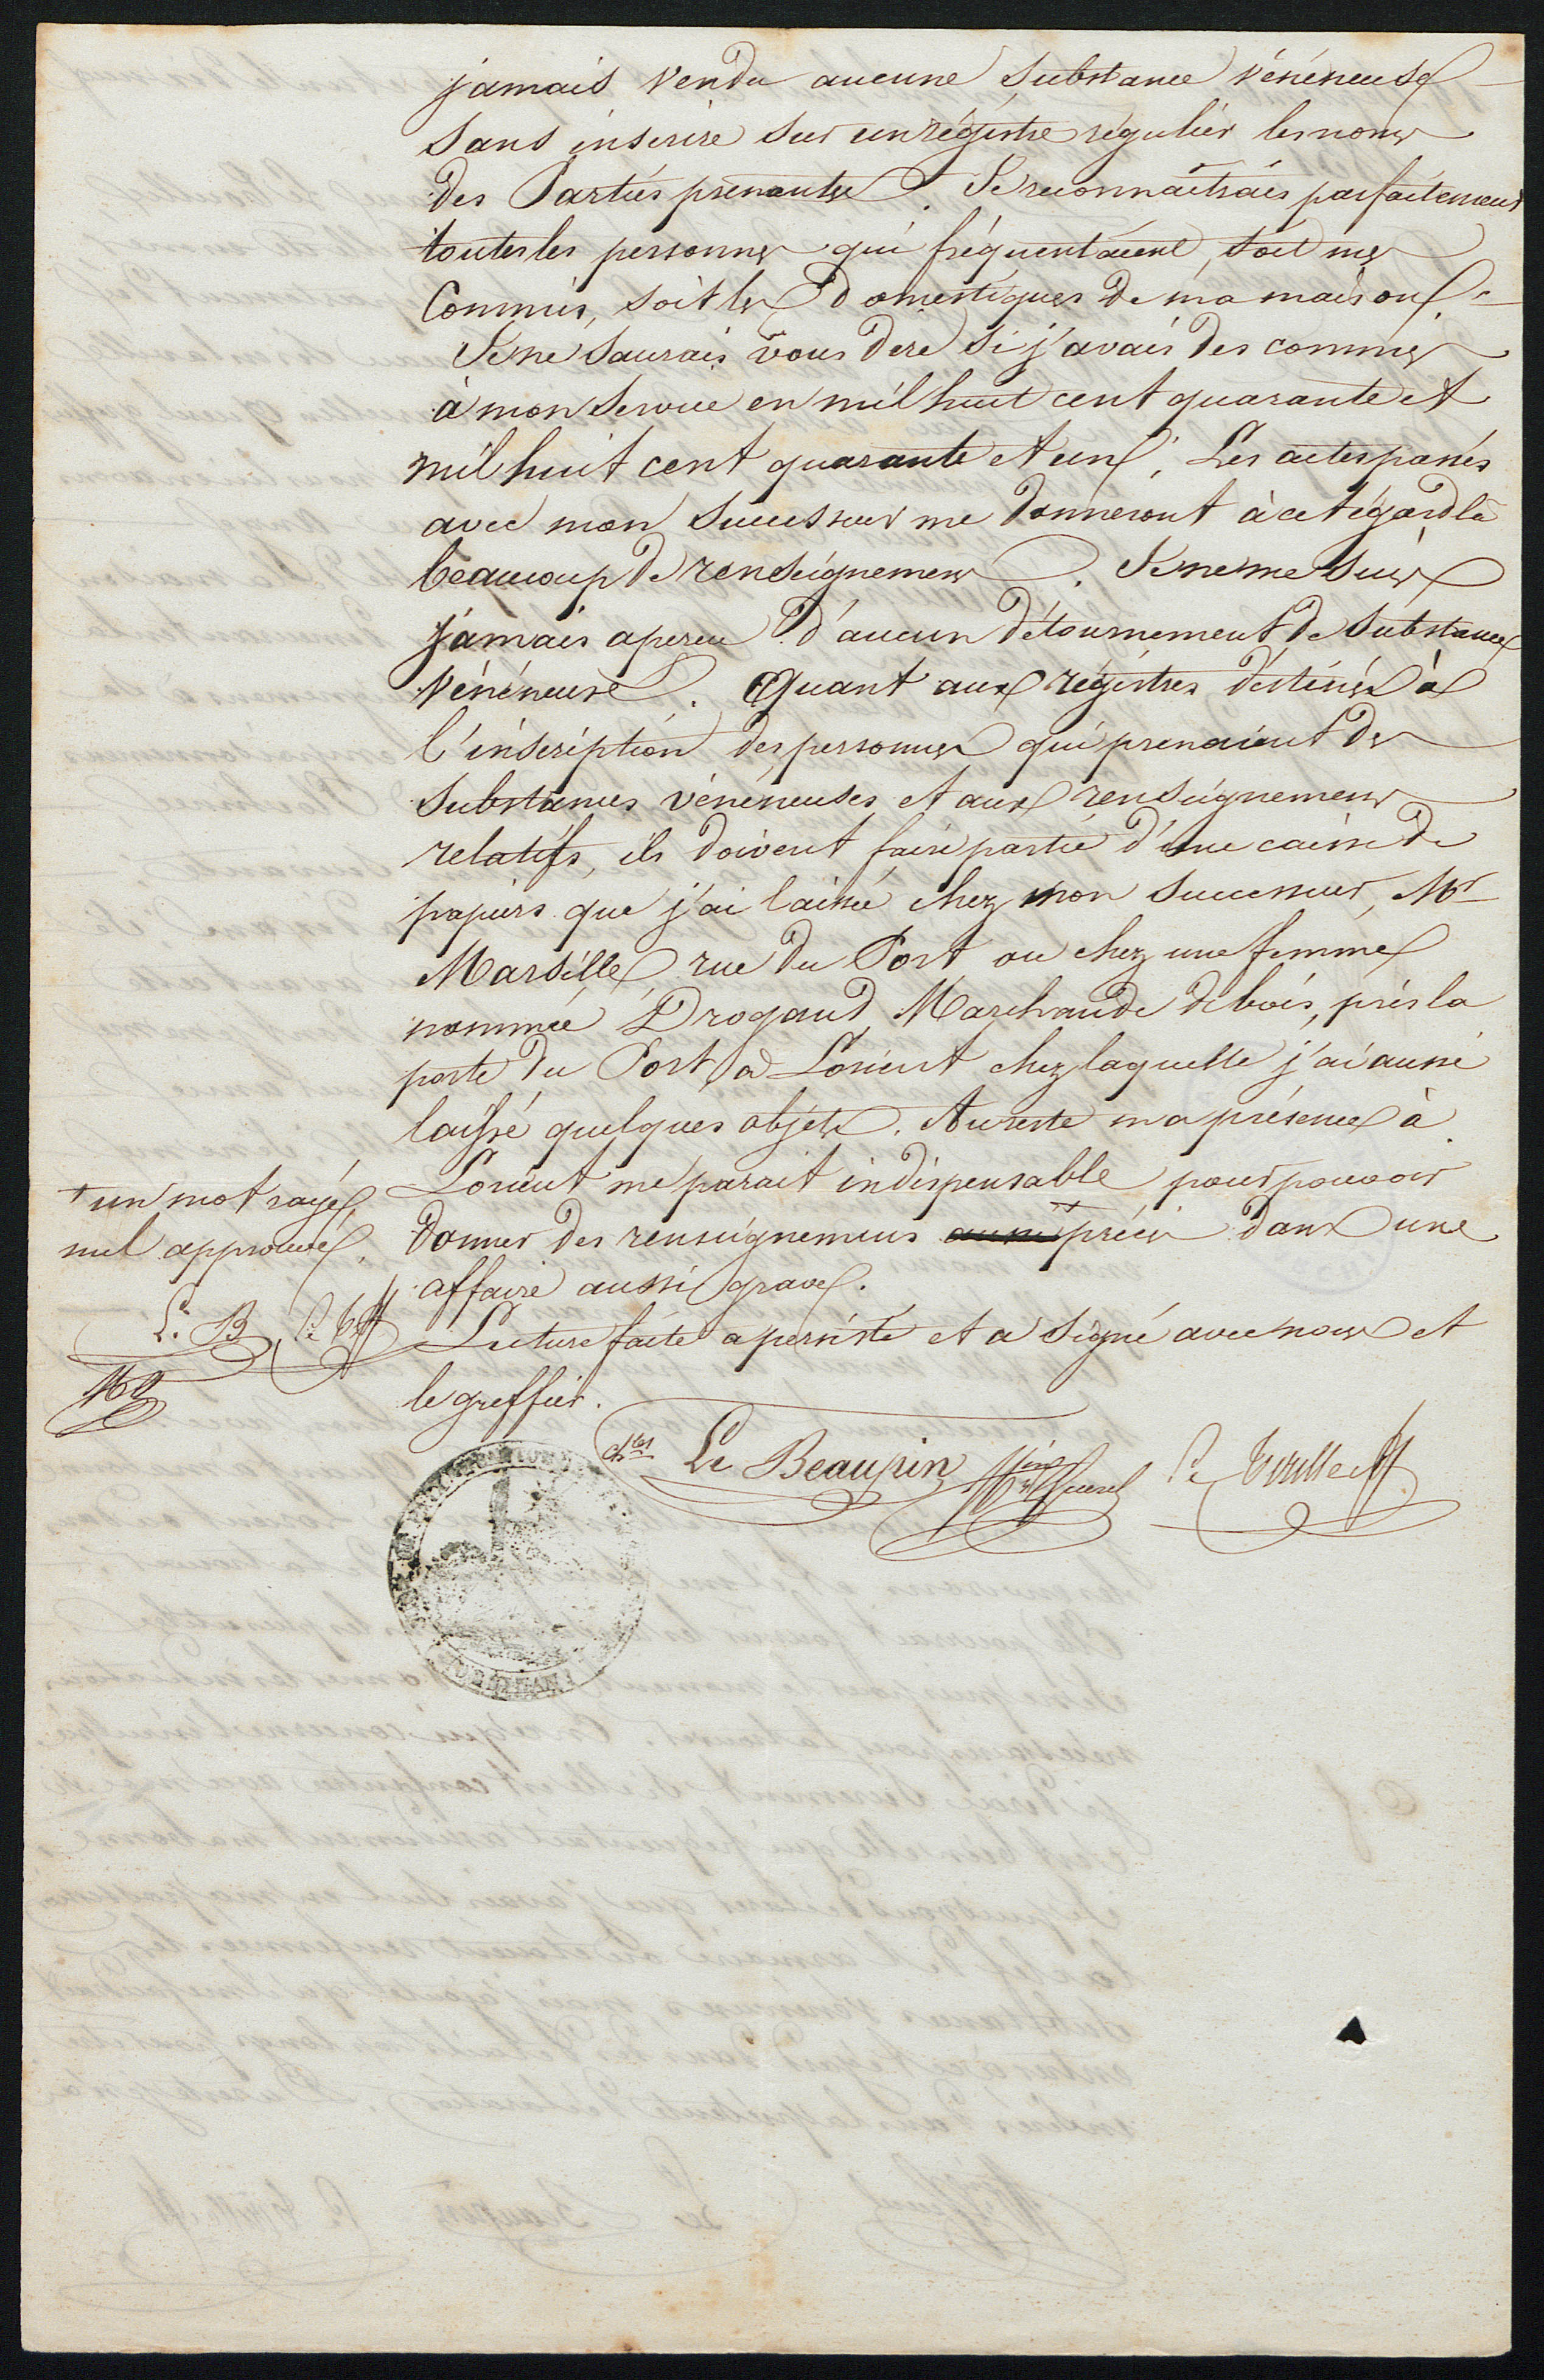 jamais vendu aucune substance vénéneuse
sans inscrire sur un régistre régulier les noms
des Parties prenantes. Je reconnaitrais parfaitement
toutes les personnes qui fréquentaient, soit mes
Commis, soit les domestiques de ma maison.
Je ne saurais vous dire si j'avais des commis
à mon service en mil huit cent quarante et
mil huit cent quarante et un. Les actes passés
avec mon successeur me donneront à cet égard là
beaucoup de renseignemens. Je ne me suis
jamais aperçu d'aucun détournement de substances
vénéneuse. Quant aux régistres destinés à
l'inscription des personnes qui prenaient des
substances vénéneuses et aux renseignemens
relatifs, ils doivent faire partie d'une caisse de
papiers que j'ai laissée chez mon successeur, Mr
Marsille, rue du Port ou chez une femme
nommée Drogaud, Marchande de bois, près la
porte du Port, à Lorient chez laquelle j'ai aussi
laissé quelques objets. Au reste ma présence à
Lorient me parait indispensable pour pouvoir
donner des renseignemens aussi précis dans une
affaire aussi grave.
Lecture faite a persisté et a signé avec nous et
le greffier.
+ un mot rayé
nul approuvé.
L. B.
Le Beaupin